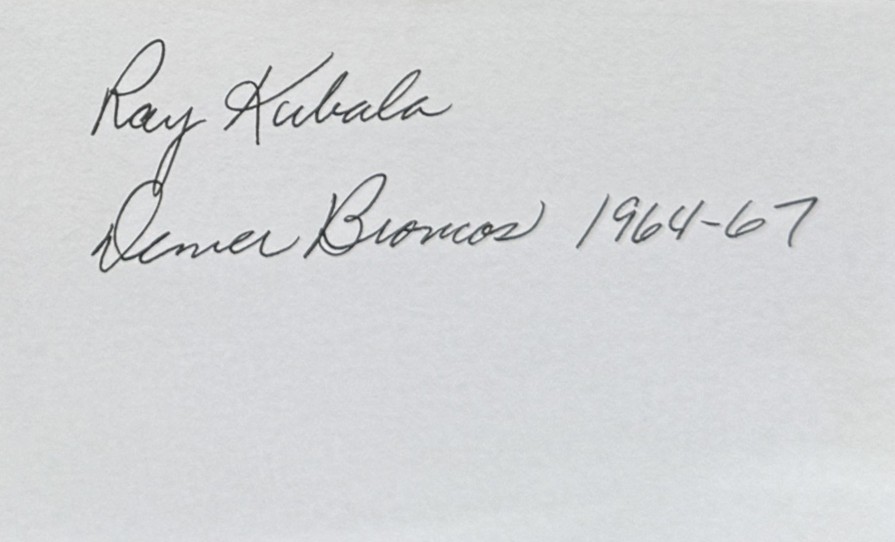 Ray Kubala
Denver Broncos 1964-67